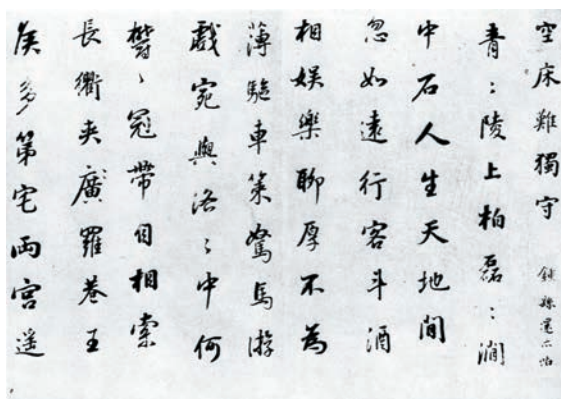 空床難獨守
青〻陵上柏磊〻澗
中石人生天地間
忽如遠行客斗酒
相娛樂聊厚不為
薄驅車策駑馬游
戲宛與洛〻中何
欝〻冠帶自相索
長衢夾廣羅巷王
侯多第宅兩宮遥